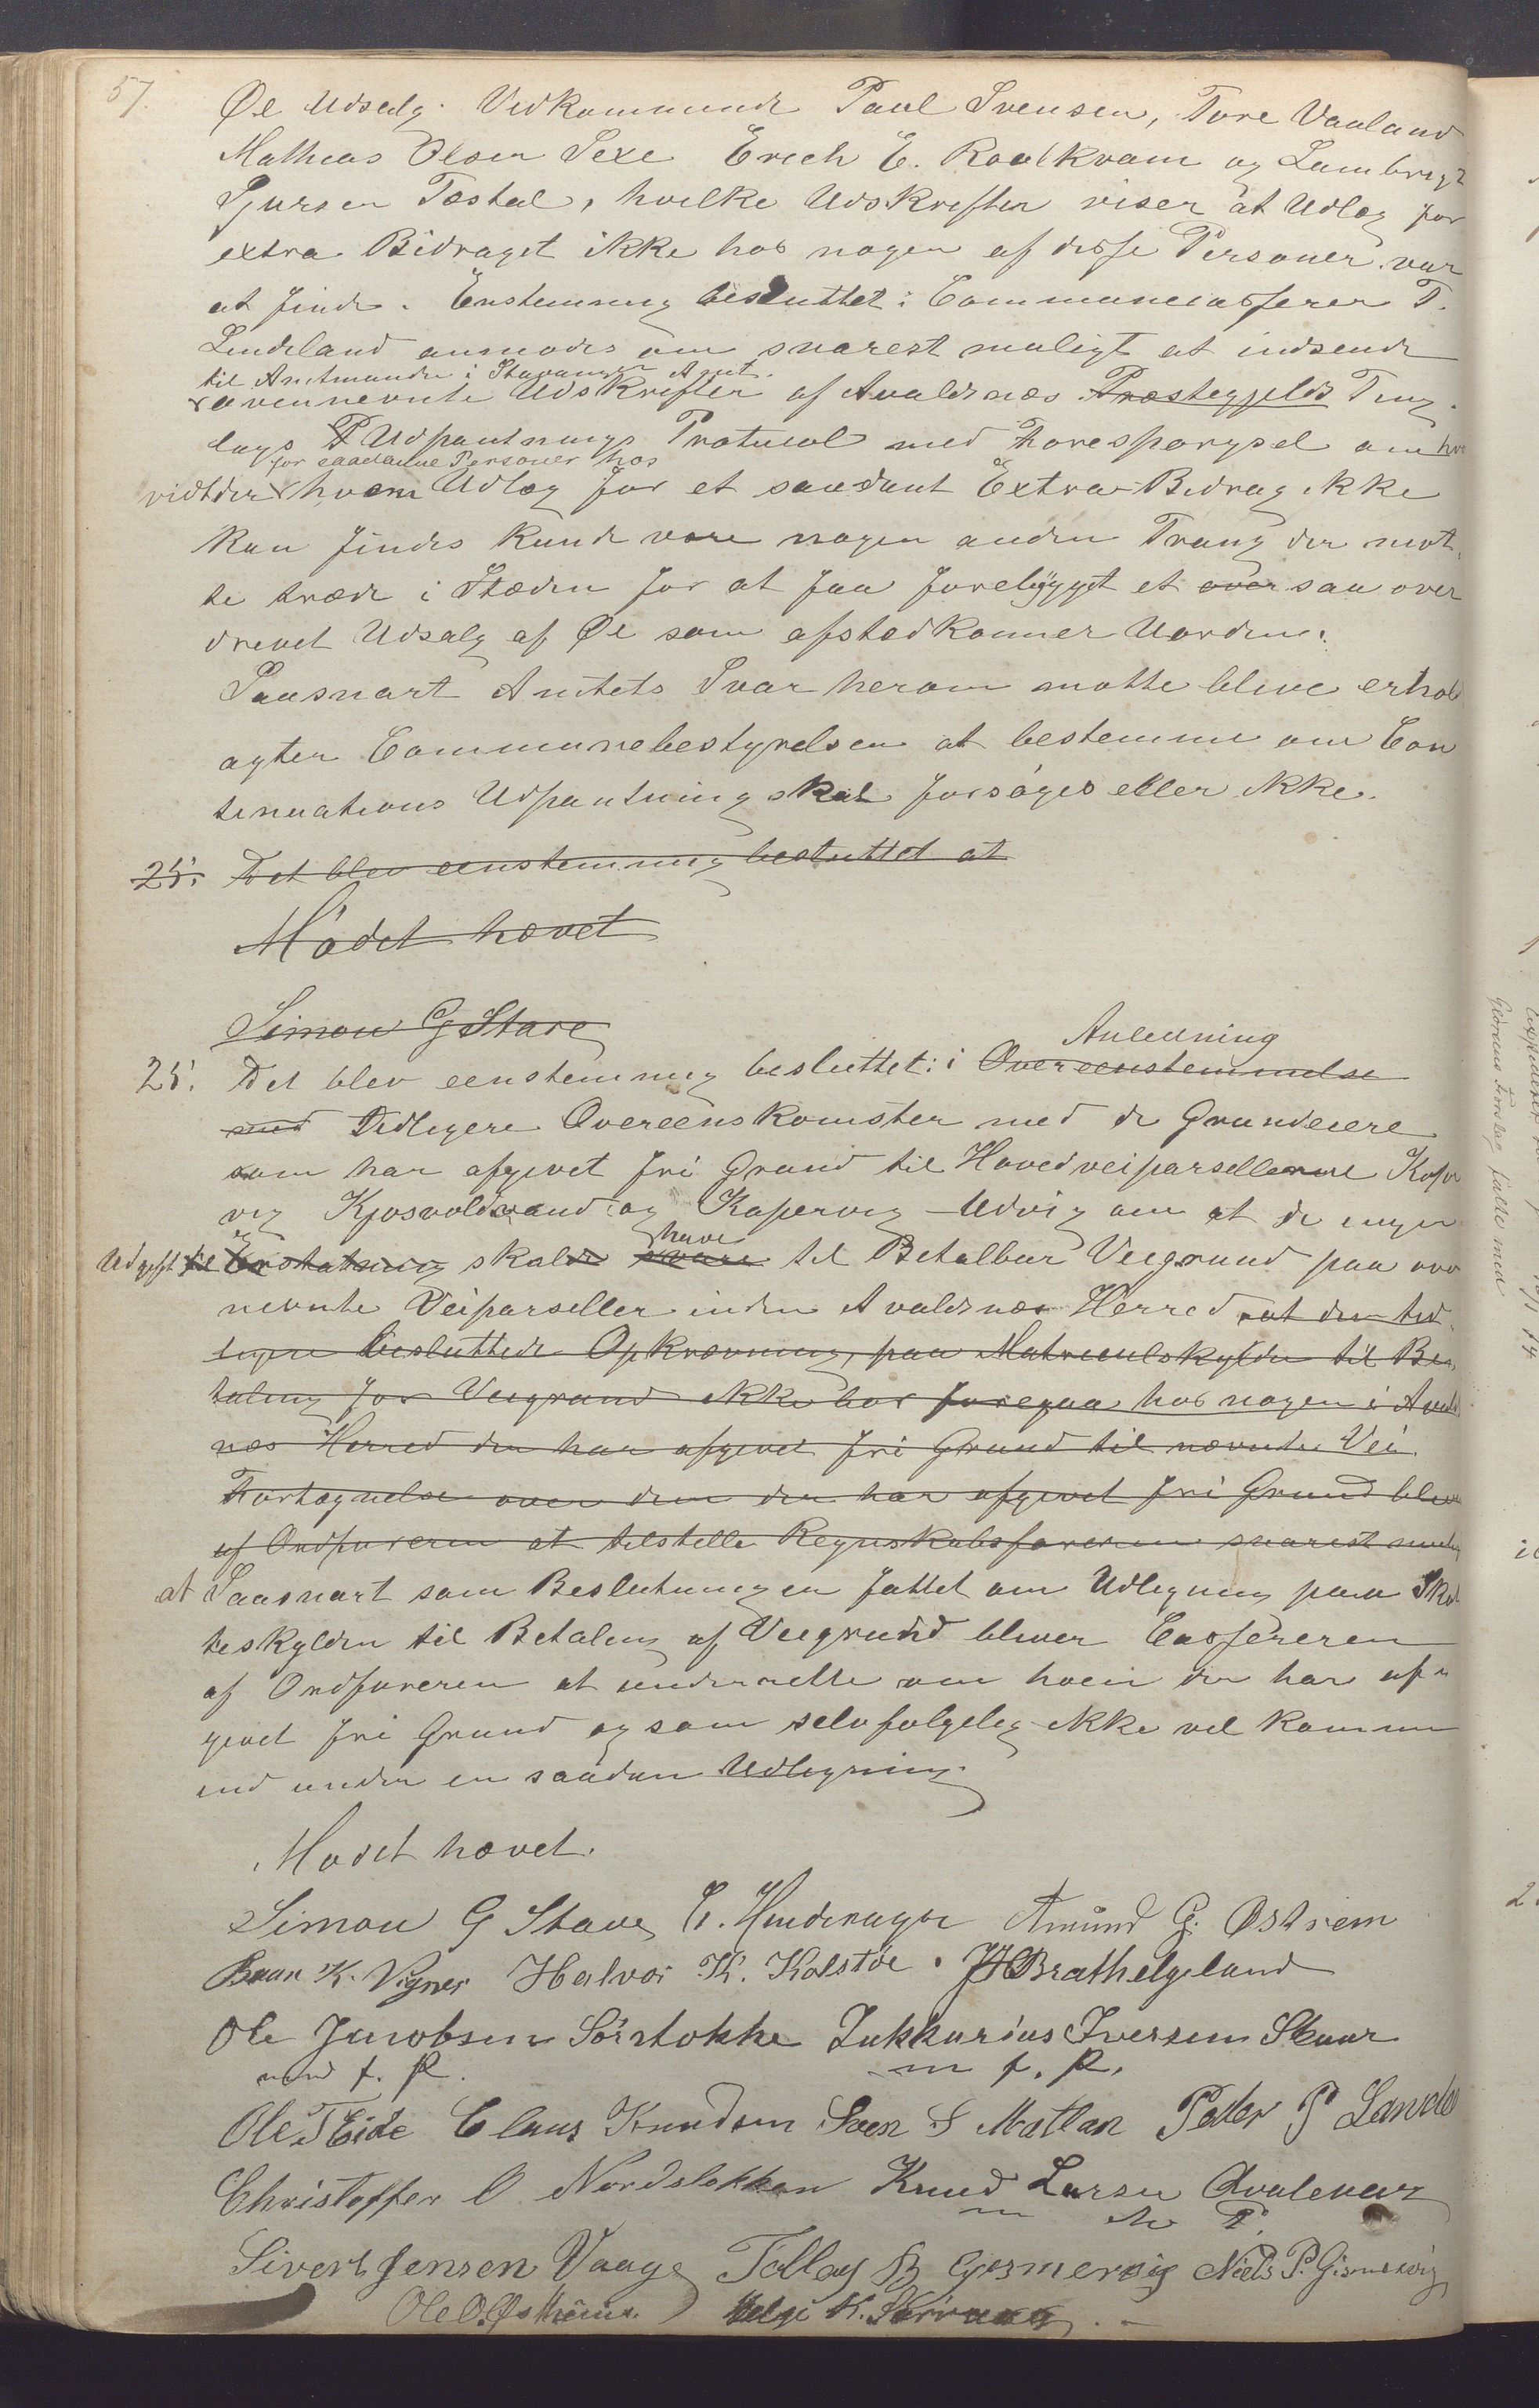 57.
Øl Udsalg. Vedkommende Paul Svensen, Tore Vaaland
Mathias Olsen Sexe Erich E. Raalkvam og Lambrigt
Sjursen Tostal, hvilke Udskrifter viser at Udlæg for
extra Bidraget ikke hos nogen af disse Personer var
at finde. Enstemmig besluttet: Communecasserer T.
Lindeland anmodes om snarest muligt at indsende
til Amtmanden i Stavanger Amt.
ovennevnte Udskrifter af Avaldsnæs Præstegjelds Ting
lags Udpantnings Protocol med Forespørgsel om hvo
for saadanne Personer hos
vidt der hvem Udlæg for et saadant Extra Bidrag ikke
kan findes kunde være nogen anden Tvang der maat
te træde i Stæden for at faa forebygget et over saa over
drevet Udsalg af Øl som afstedkommer Uorden.
Saasnart Amtets Svar herom maatte blive erhol
agter Communebestyrelsen at bestemme om Con
tinuations Udpantning skal forsøges eller ikke.
25. Det blev eenstemmig besluttet at
Mødet hævet
Simon G Stave
Anledning
25. Det blev eenstemmig besluttet: i Overeenstemmelse
med Tidligere Overeenskomster med de Grundeiere
som har afgivet fri Grund til Hovedveiparsellerne Kopr
vig Kjosvoldvand og Kopervig - Udvig om at de ingen
have
Udgift til Erstatning skulde svare til Betalbar Veigrund paa ovr
nevnte Veiparseller inden Avaldsnæs Herred at den tid
ligere besluttede Opkrævning, paa Matriculskylden til Be
taling for Veigrund ikke bør foregaa hos nogen i Avalds
næs Herred der har afgivet fri Grund til nævnte Vei.
Fortegnelse over dem der har afgivet fri Grund blev
af Ordføreren at tilstille Regnskabsføreren snarest mulig
at Saasnart som Beslutningen fattet om Udligning paa Skat
teskylden til Betaling af Veigrund bliver Cassereren
af Ordføreren at underrette om hvem der har af-
givet fri Grund og som selvfølgelig ikke vil komme
ind under en saadan Udligning.
Mødet hævet.
Simon G Stave E. Hinderager Amund G. Østrem
K. Vignes Halvor K. Kolstøe. JH Brathelgeland
Ole Jacobsen Sørstokke Zakkarias Iversen Skaar
med f. P. m f. P.
Ole T Eide Claus Knudsen Sven S Matlan Peder P Lande
Christoffer O Nordstokken Knud Larsen Qvalevaag
m P.
Sivert Jensen Vaage Tollag B Gismervig Niels P. Gismervig
Ole O. Østhiim. Helge K.